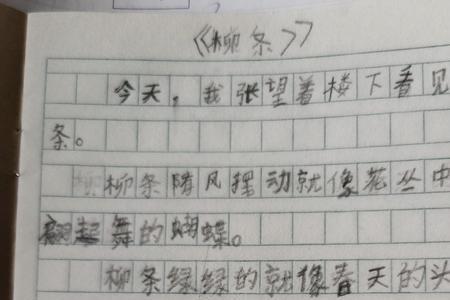 《柳条》
今天，我张望着楼下看见
条。
柳条随风摆动就像花丛中
翩起舞的蝴蝶。
柳条绿绿的就像春天的头